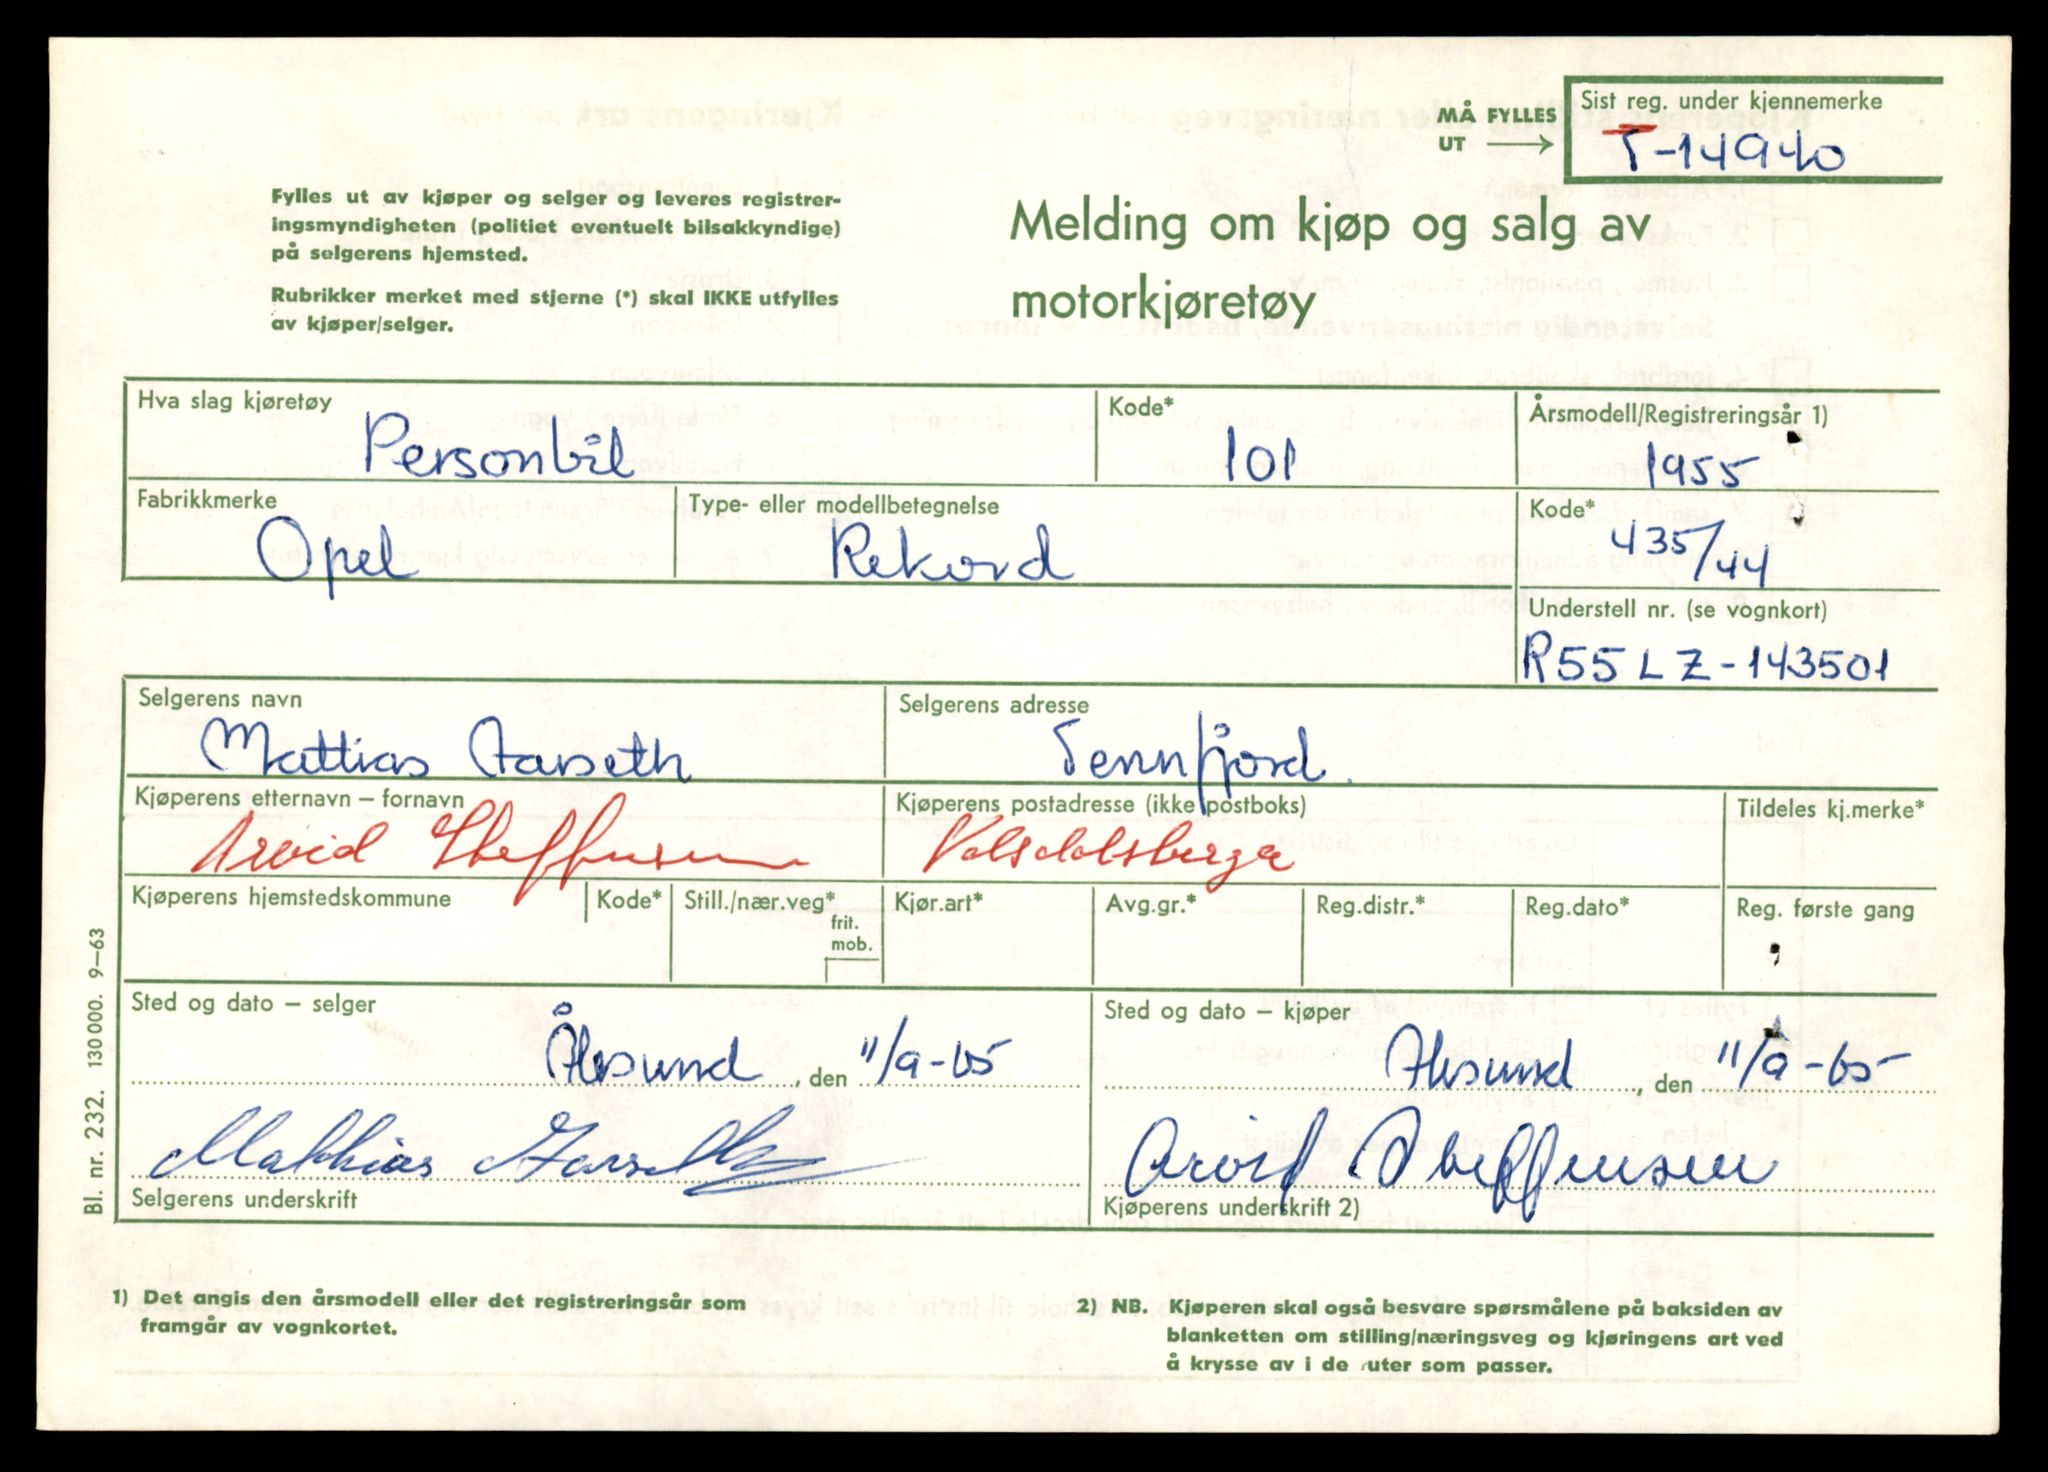 MÅ FYLLES
UT
Sist reg. under kjennemerke
T-14940
Fylles ut av kjøper og selger og leveres registrer-
ingsmyndigheten (politiet eventuelt bilsakkyndige)
på selgerens hjemsted.
Rubrikker merket med stjerne (*) skal IKKE utfylles
av kjøper/selger.
Melding om kjøp og salg av
motorkjøretøy
Hva slag kjøretøy
Personbil
Kode*
101
Årsmodell/Registreringsår 1)
1955
Fabrikkmerke
Opel
Type- eller modellbetegnelse
Rekord
Kode*
435/44
Understell nr. (se vognkort)
R55LZ-143501
Selgerens navn
Mattias Aarseth
Selgerens adresse
Tennfjord.
Kjøperens etternavn – fornavn
Arvid Steffensen
Kjøperens postadresse (ikke postboks)
Volsdalsberga
Tildeles kj.merke*
Kjøperens hjemstedskommune
Kode*
Still./nær.veg*
frit.
mob.
Kjør.art*
Avg.gr.*
Reg.distr.*
Reg.dato*
Reg. første gang
Sted og dato – selger
Ålesund, den 11/9-65
Sted og dato – kjøper
Ålesund, den 11/9-65
Mathias Aarseth
Selgerens underskrift
Arvid Steffensen
Kjøperens underskrift 2)
Bl. nr. 232. 130 000. 9–63
1) Det angis den årsmodell eller det registreringsår som
framgår av vognkortet.
2) NB. Kjøperen skal også besvare spørsmålene på baksiden av
blanketten om stilling/næringsveg og kjøringens art ved
å krysse av i de ruter som passer.